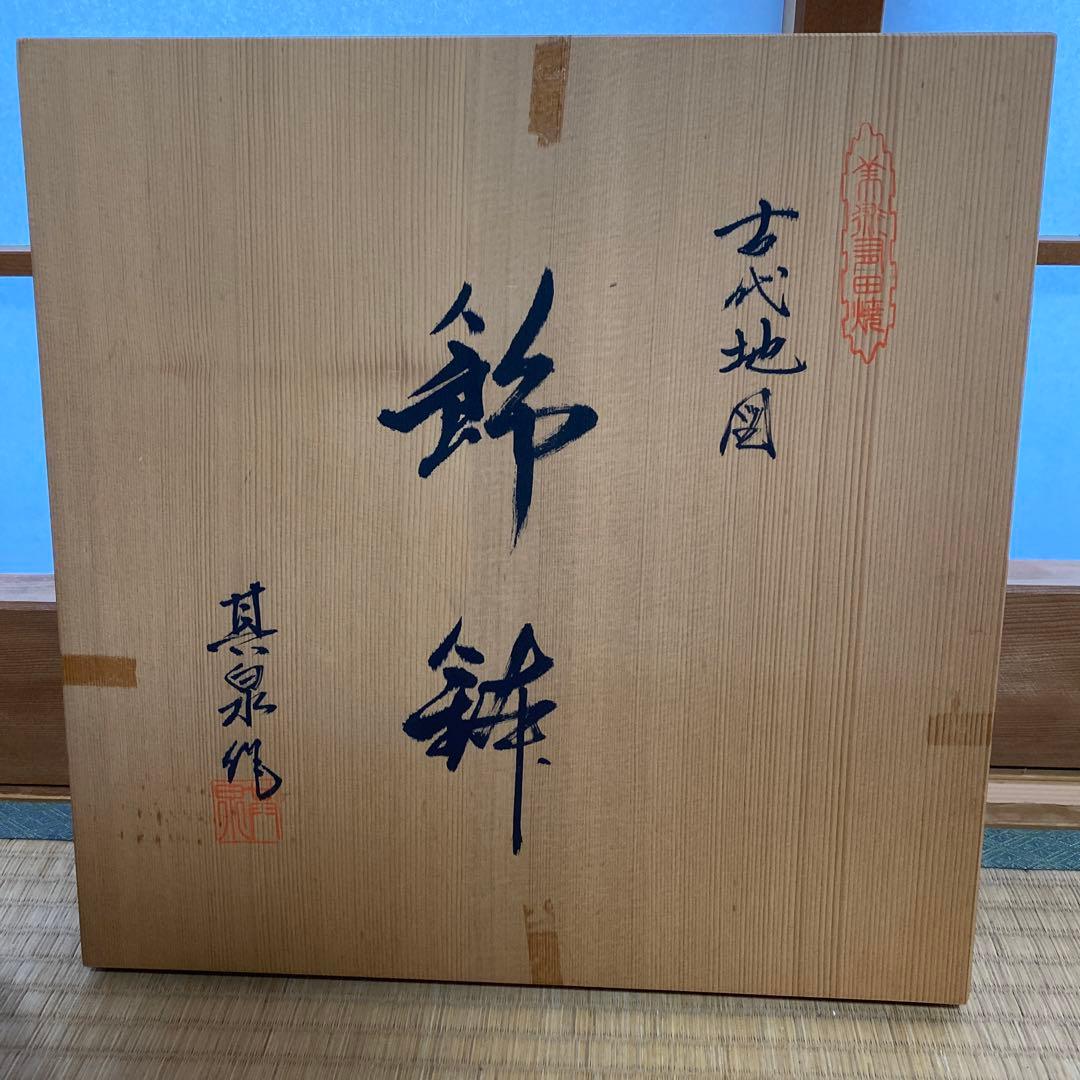 美術有田焼
古代地図
飾鉢
其泉作